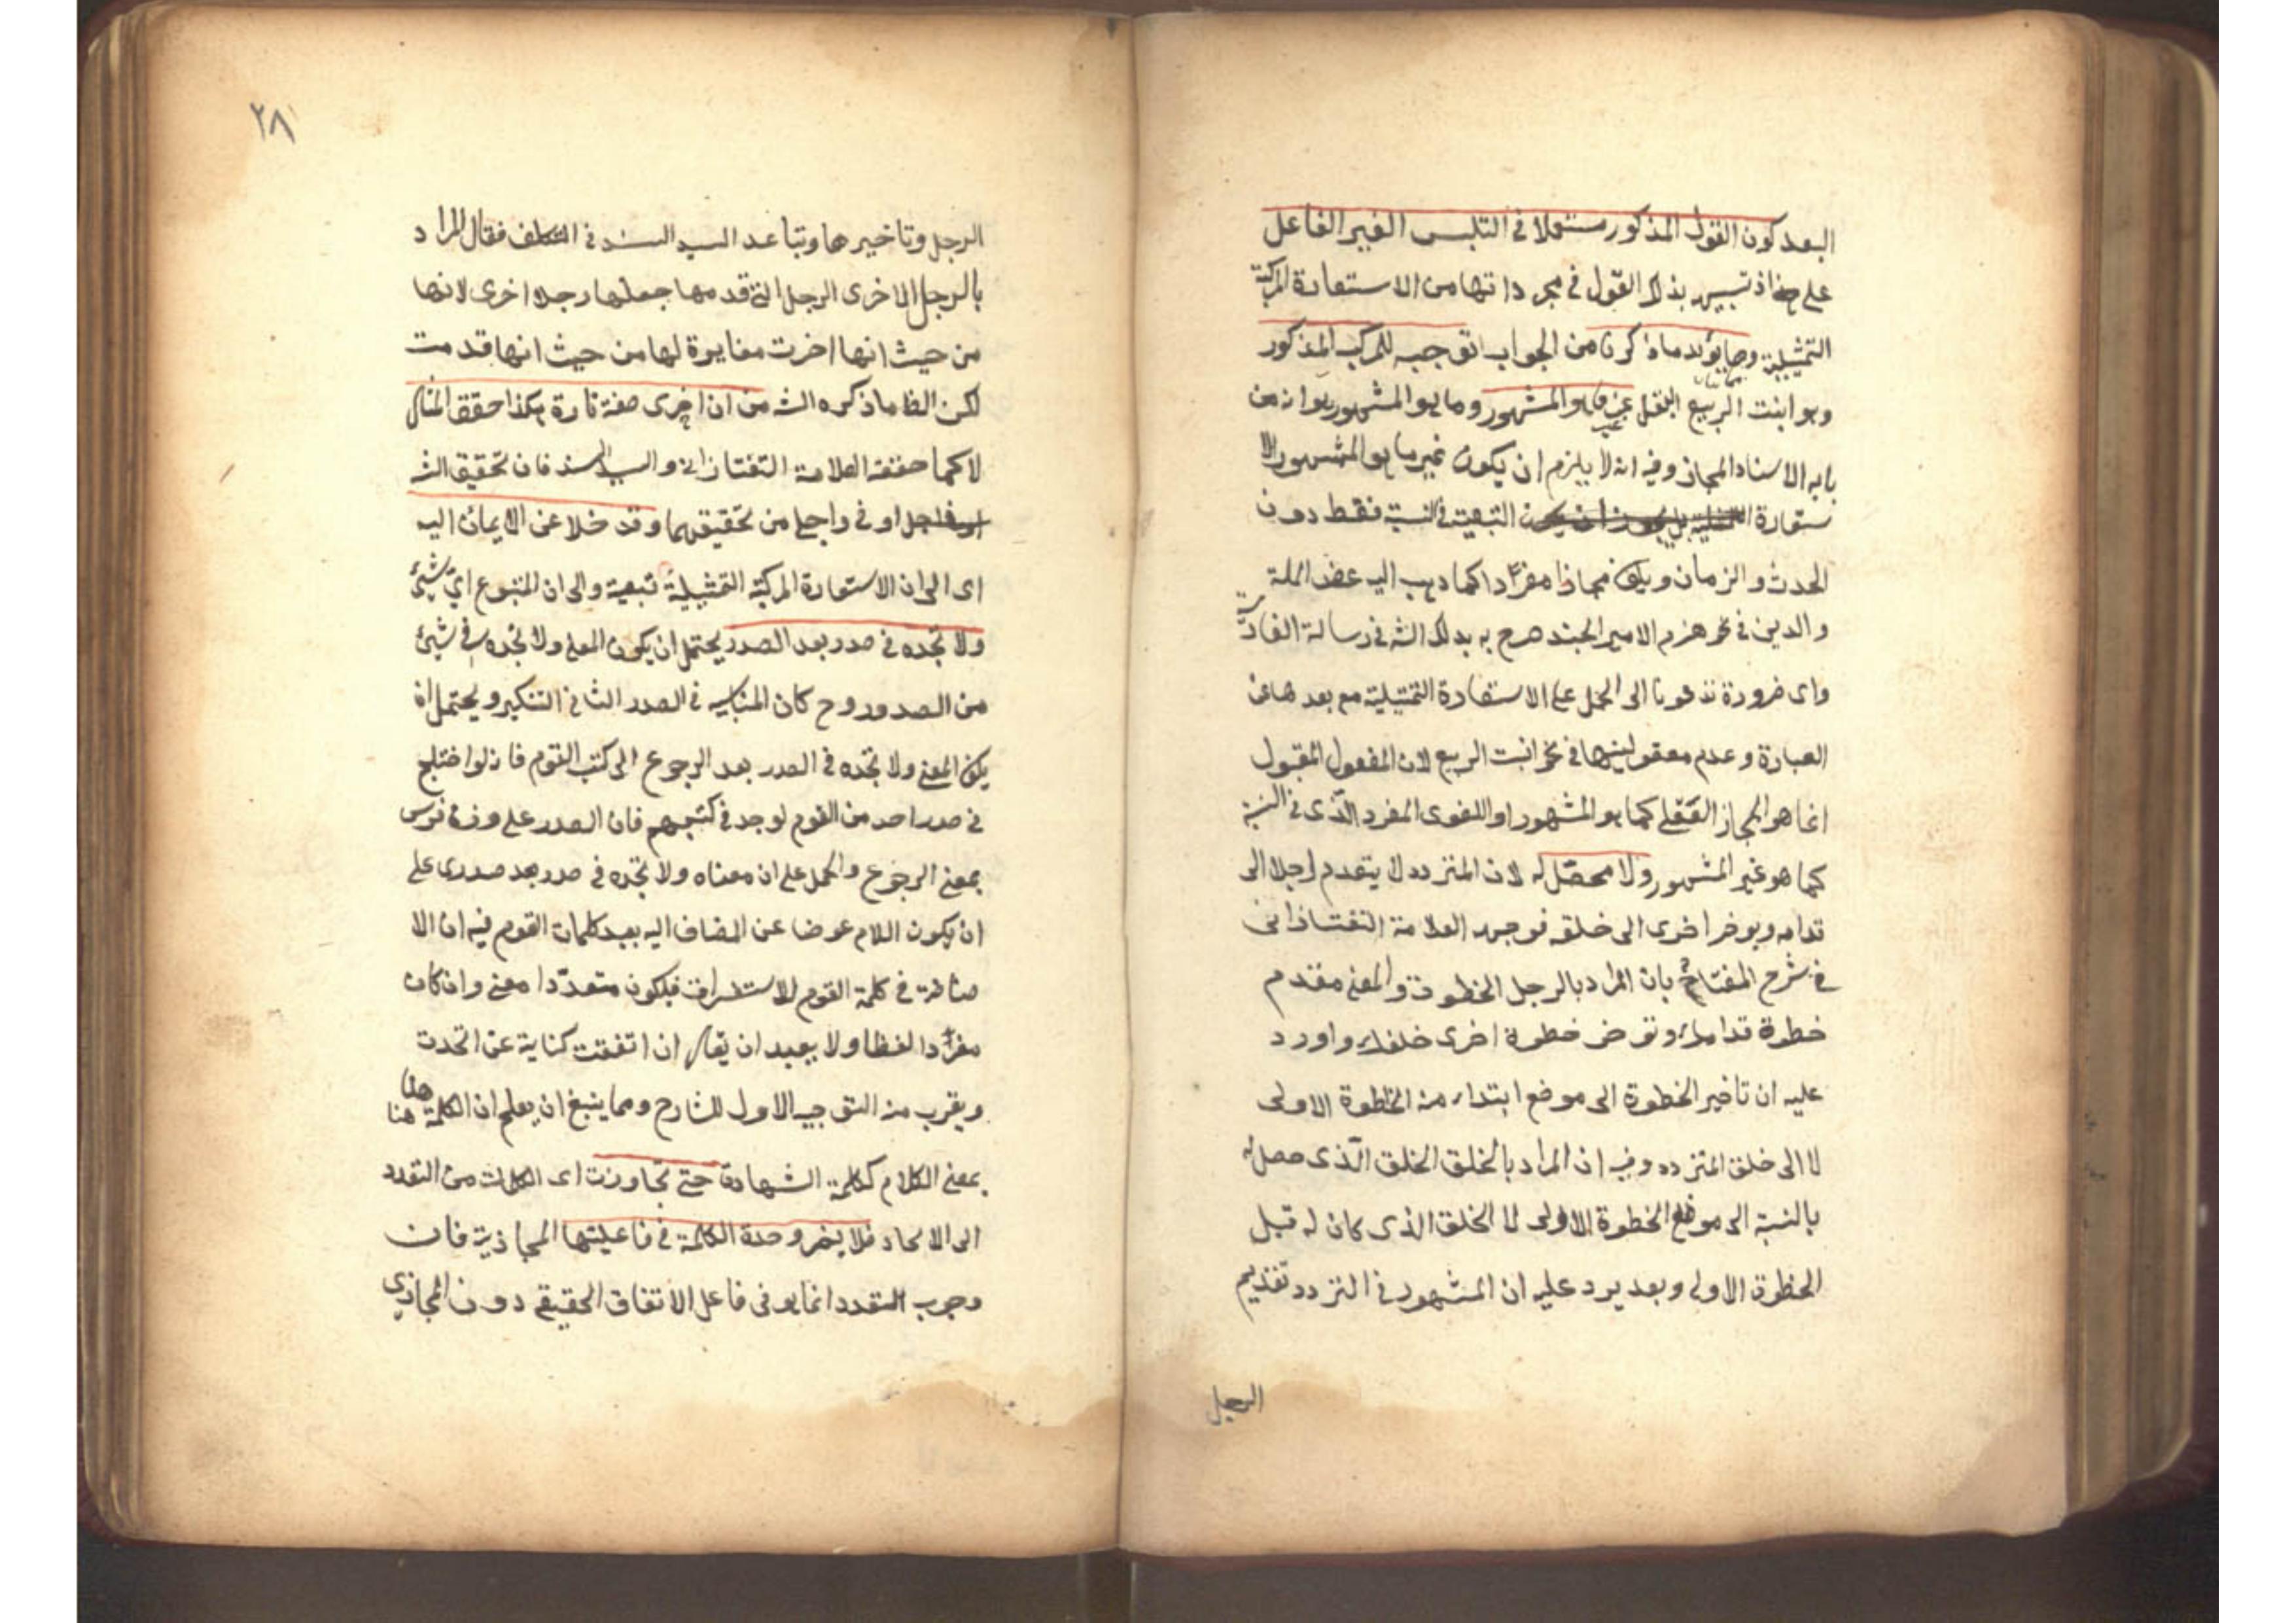 البعد كون القول المذكور مستعملا في التلبس الغير الفاعل
على هذا ذ تبيين بذلك القول في مجر داتها من الاستعارة المركبة
التمثيلية ومما يؤيد ما ذكرنا من الجواب توجيه للمركب المذكور
وهو انبت الربيع البقل عن ما هو المشهور وما هو المشهور هو انه من
بابه الاسناد المجاز وفيه انه لا يلزم ان يكون غير ما هو المشهور الا
ستعارة التبعية في النسبة فقط دون
الحدث والزمان ويكون مجازا مفردا كما ذهب اليه عضد الملة
والدين في نحو هزم الامير الجند صرح به بذلك الشه في رسالة الفارسية
واى ضرورة تدعونا الى الحمل على الاستعارة التمثيلية مع بعد هاعن
العبارة وعدم معقوليتها في نحو انبت الربيع لان المفعول المقبول
انما هو المجاز العقلي كما هو المشهور او اللغوى المفرد الذى في النسبة
كما هو غير المشهور ولا محصل له لان المتردد لا يتقدم رجلا الى
قدامه ويوخر اخرى الى خلفه فوجهه العلامة التفتازانى
في شرح المفتاح بان المراد بالرجل الخطوة والمعنى مقدم
خطوة قدامه وتوخر خطوة اخرى خلفه واورد
عليه ان تاخير الخطوة الى موضع ابتداء منه الخطوة الاولى
لا الى خلق المتردد وفيه ان المراد بالخلق الخلق الذى حصل له
بالنسبة الى موضع الخطوة الاولى لا الخلق الذى كان له قبل
الخطوة الاولى وبعد يرد عليه ان المشهور في التردد تقديم
الرجل
٢٨
الرجل وتاخيرها وتباعد السيد السند في التكلف فقال المراد
بالرجل الاخرى الرجل التي قدمها جعلها رجلا اخرى لانها
من حيث انها اخرت مغايرة لها من حيث انها قدمت
لكن الظا ما ذكره الشه من ان اخرى صفة تارة هكذا حقق المثال
لا كما حققه العلامة التفتازانى والسيد السند فان تحقيق الشه
اوفى واجلى من تحقيقهما وقد خلا عن الايمان اليه
اى الى ان الاستعارة المركبة التمثيلية تبعية والى ان المتبوع اي شيئ
ولا تجده في صدر بعد الصدر يحتمل ان يكون المعنى ولا تجده في شيئ
من الصدور وح كان المناسب في الصدر الثاني التنكير ويحتمل ان
يكون المعنى ولا تجده في الصدر بعد الرجوع الى كتب القوم فانه لو اختلج
في صدر احد من القوم لوجد في كتبهم فان الصدر على وزن فرس
بمعنى الرجوع والحمل على ان معناه ولا تجده في صدر بعد صدرى على
ان يكون اللام عوضا عن المضاف اليه بعيد كلمات القوم فيه ان الا
ضافة في كلمة القوم للاستغراق فيكون متعددا معنى وان كان
مفردا لفظا ولا يبعد ان يقال ان اتفقت كناية عن اتحدت
ويقرب منه التوجيه الاول للشارح ومما ينبغي ان يعلم ان الكلمة هنا
بمعنى الكلام ككلمة الشهادة حتى تجاوزت اى الكلمات من التعدد
الى الاتحاد فلا يضر وحدة الكلمة في فاعليتها المجازية فان
وجوب التعدد انما هو في فاعل الاتفاق الحقيقي دون المجازى